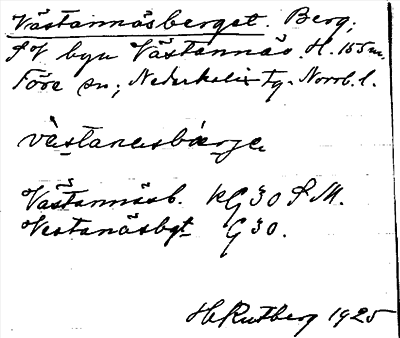 Västannäsberget. Berg;
S V byn Västannäs. H. 155 m.
Töre sn; Nederkalix tg. Norrb. l.
västanesbärje
Västannäsb. KG 30 S M.
Vestanäsbgt G 30.
H Rutberg 1925